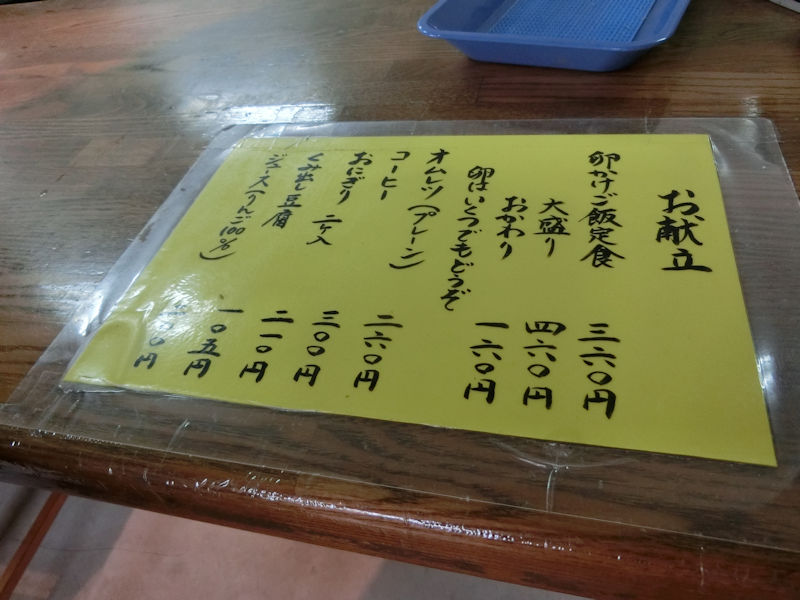 お献立
卵かけご飯定食 三六〇円
大盛り 四六〇円
おかわり 一六〇円
卵はいくつでもどうぞ
オムレツ(プレーン) 二六〇円
コーヒー 三〇〇円
おにぎり 二ケ入 二一〇円
くみ出し豆腐 一〇五円
ジュース(りんご100%) 〇〇円